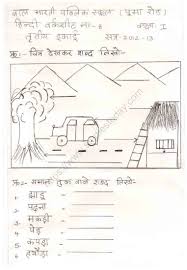 बाल भारती पब्लिक स्कूल (पूसा रोड)
हिन्दी कक्षा I
तृतीय इकाई सत्र - 2012-13
चित्र देखकर शब्द लिखो-
समान तुक वाले शब्द लिखो-
1. झाड़ू
2. पढ़ना
3. मकड़ी
4. पेड़
5. कपड़ा
6. हथौड़ा